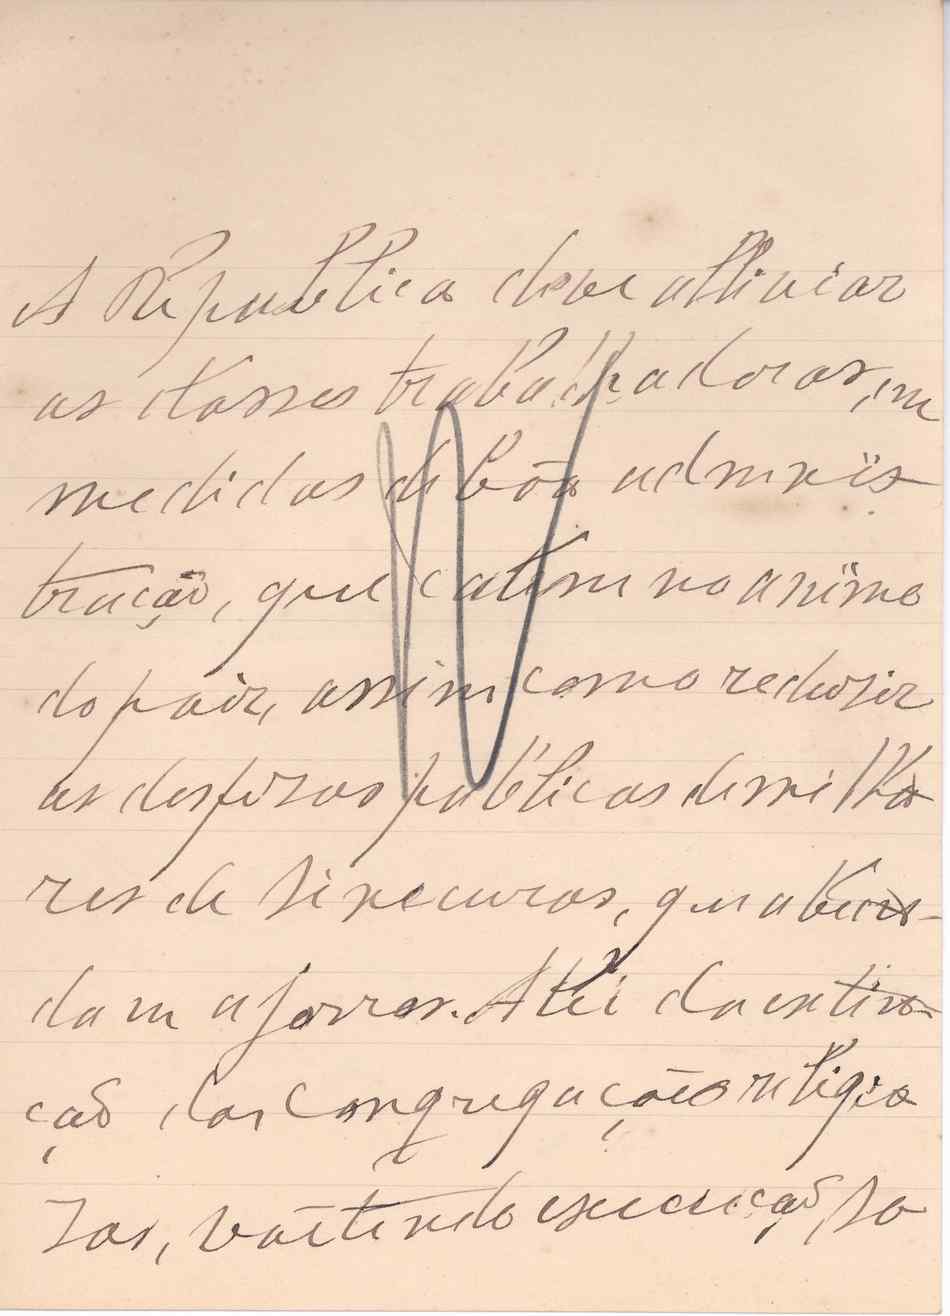 A Republica deve alliviar
as classes trabalhadoras, em
medidas de bôa adminis
tração, que calem no animo
do paiz, assim como reduzir
as despezas publicas de milha
res de sinecuras, que abun-
dam a jorros. A lei da extin-
ção das Congregações religio
zas, tendo execução, so